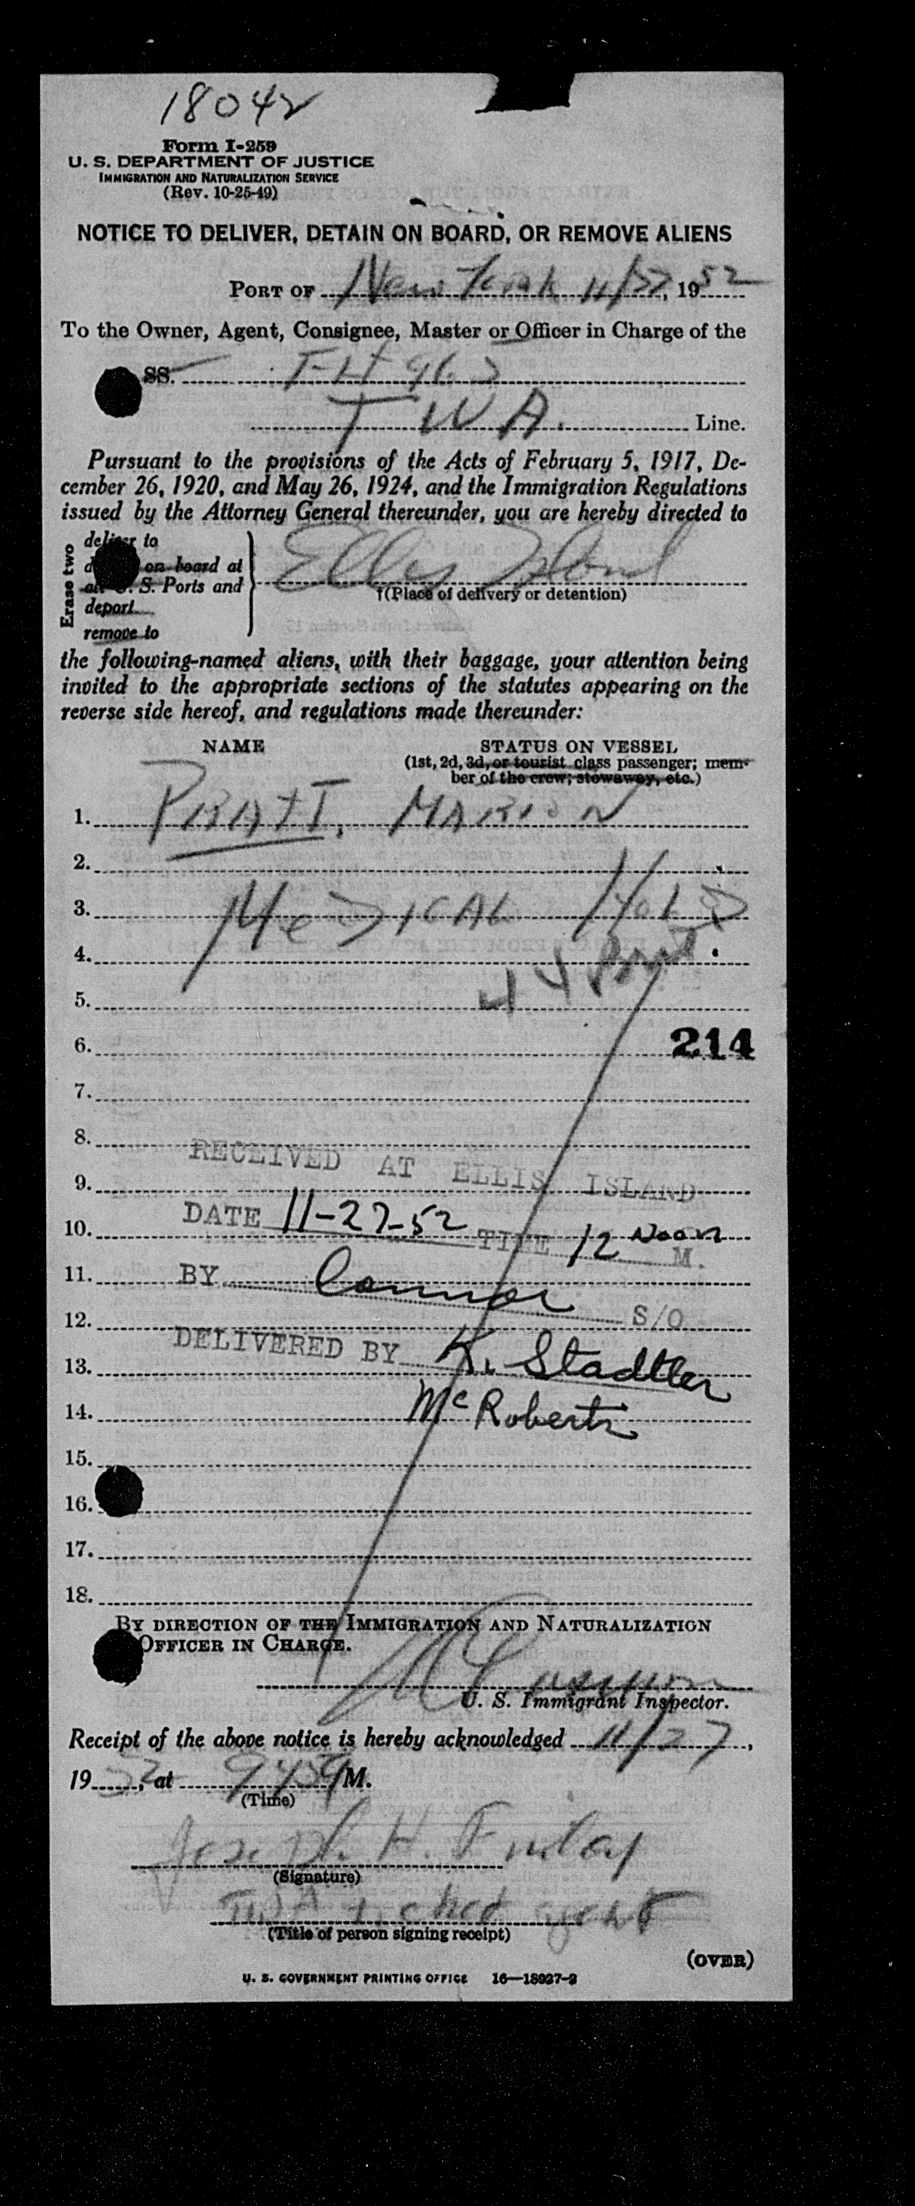 18042
Form I-259
U. S. DEPARTMENT OF JUSTICE
IMMIGRATION AND NATURALIZATION SERVICE
(Rev. 10-25-49)
NOTICE TO DELIVER, DETAIN ON BOARD, OR REMOVE ALIENS
PORT OF New York 11/27, 1952
To the Owner, Agent, Consignee, Master or Officer in Charge of the
SS.
TWA. Line.
Pursuant to the provisions of the Acts of February 5, 1917, De-
cember 26, 1920, and May 26, 1924, and the Immigration Regulations
issued by the Attorney General thereunder, you are hereby directed to
Erase two
deliver to
on board at
all U. S. Ports and
deport
remove to
Ellis Island
†(Place of delivery or detention)
the following-named aliens, with their baggage, your attention being
invited to the appropriate sections of the statutes appearing on the
reverse side hereof, and regulations made thereunder:
NAME STATUS ON VESSEL
(1st, 2d, 3d, or tourist class passenger; mem-
ber of the crew; stowaway, etc.)
1. PRATT, MARION
2.
3. MEDICAL HOLD
4.
5. 44
6. 214
7.
8.
RECEIVED AT ELLIS ISLAND
9.
10. DATE 11-27-52 TIME 12 Noon M.
11. BY Connor S/O
12.
13. DELIVERED BY K. Stadtler
14. McRoberts
15.
16.
17.
18.
BY DIRECTION OF THE IMMIGRATION AND NATURALIZATION
OFFICER IN CHARGE.
U. S. Immigrant Inspector.
Receipt of the above notice is hereby acknowledged 11/27,
1952, at M.
(Time)
Joseph H. Finlay
(Signature)
TWA ticket agent
(Title of person signing receipt)
(OVER)
U. S. GOVERNMENT PRINTING OFFICE 16—18927-2